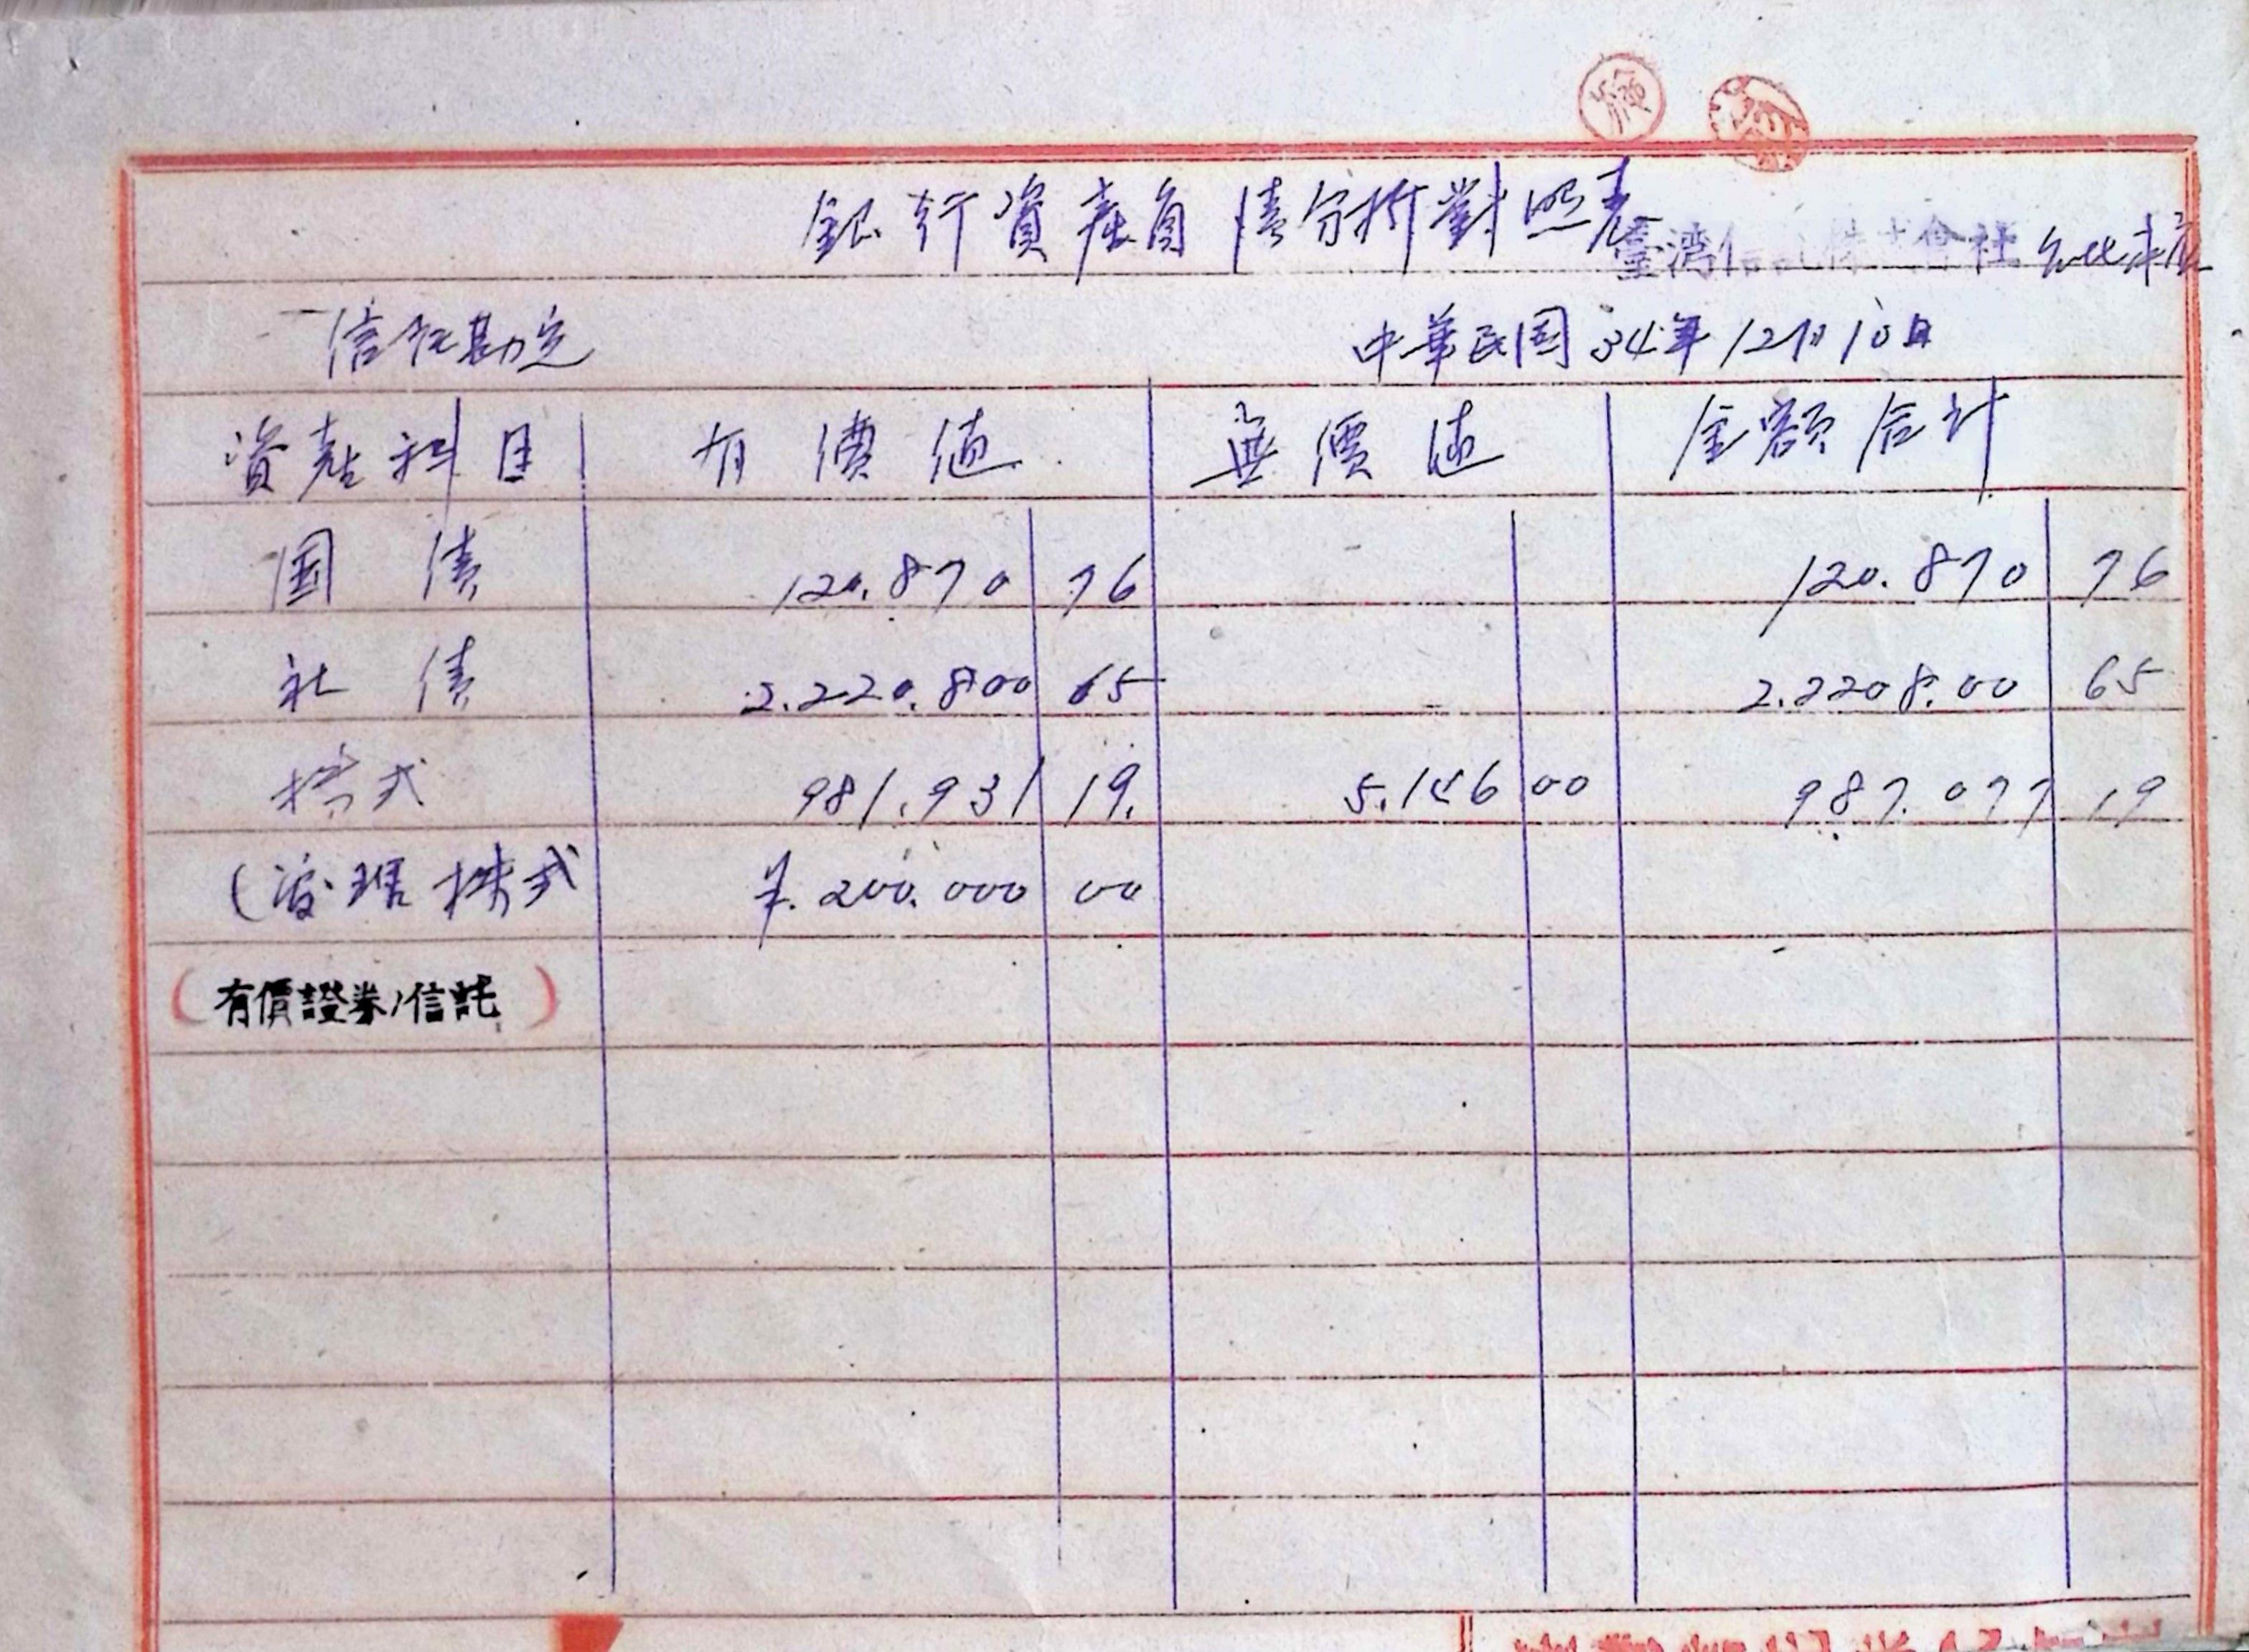 銀行資産負債分析對照表
臺灣信託株式會社 台北本店
信託勘定
中華民国34年12月10日
資産科目 有價値 無價値 金額合計
国債 120.870 76 120.870 76
社債 2.220.800 65 2.2208.00 65
株式 981.931 19. 5.146 00 987.077 19
株式 200.000 00
(有價證券ノ信託)